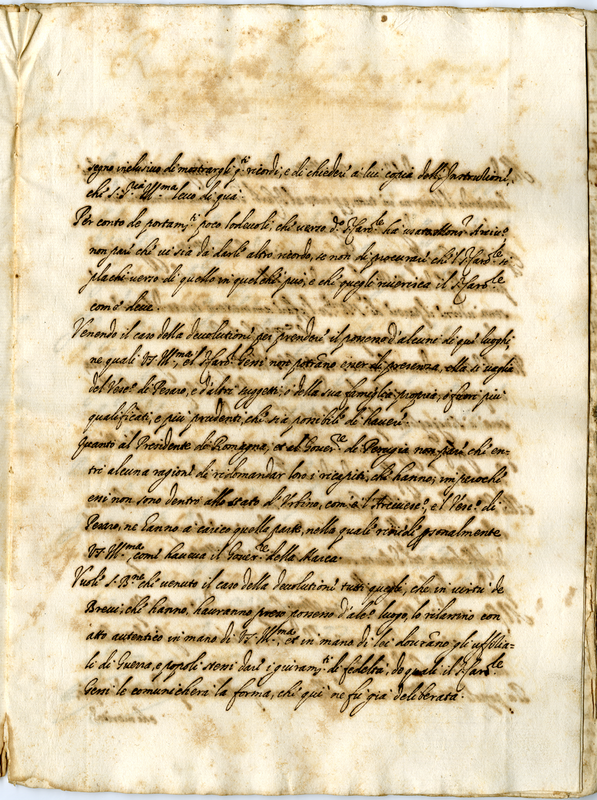 segno inclusivo di mostrargli q.ti ricordi, e di chieder a lui copia dell'Instruttioni,
che S. S.tà Ill.ma hebbe di quà.
Per conto de portam.ti poco lodevoli che verso d.o Card.le ha usato Mons.r
non pare che vi sia da darle altro ricordo, se non di procurare che 'l s.r Card.le si
plachi verso di quello in quel che può, e che quegli riverisca il s.r Card.le
com'è deve.
Venendo il caso della devolutione per prendere il possesso d'alcuni di que luoghi,
ne quali V.S. Ill.ma, e 'l s.r Card. Gessi non potranno esser di presenza, ella si vaglia
del Vesc.o di Pesaro, e d'altri suggetti, ò della sua famiglia propria, ò fuori più
qualificati, e più prudenti, che sia possibile di havere.
Quanto al Presidente di Romagna, et al Gover.re di Perugia non pare che en-
tri alcuna ragione di ridomandar loro i ricapiti, che hanno, imperoche
essi non sono dentro allo stato d'Urbino, com'è l'Arcivesc.o, e 'l Vesc.o di
Pesaro, ne hanno à carico quella parte, nella quale risiede personalmente
V.S. Ill.ma come haveva il Gover.re della Marca.
Vuole S. B.ne che venuto il caso della devolutione tutti quegli, che in virtù de
Brevi, che hanno, havranno preso possesso d'alc.o luogo, lo rilassino con
atto autentico in mano di V.S. Ill.ma et in mano di lei dovranno gli uffitia-
li di Guerra, e popoli stessi dare i giuram.ti di fedeltà, de quali il s.r Card.le
Gessi le comunicherà la forma, che quì ne fù già deliberata.